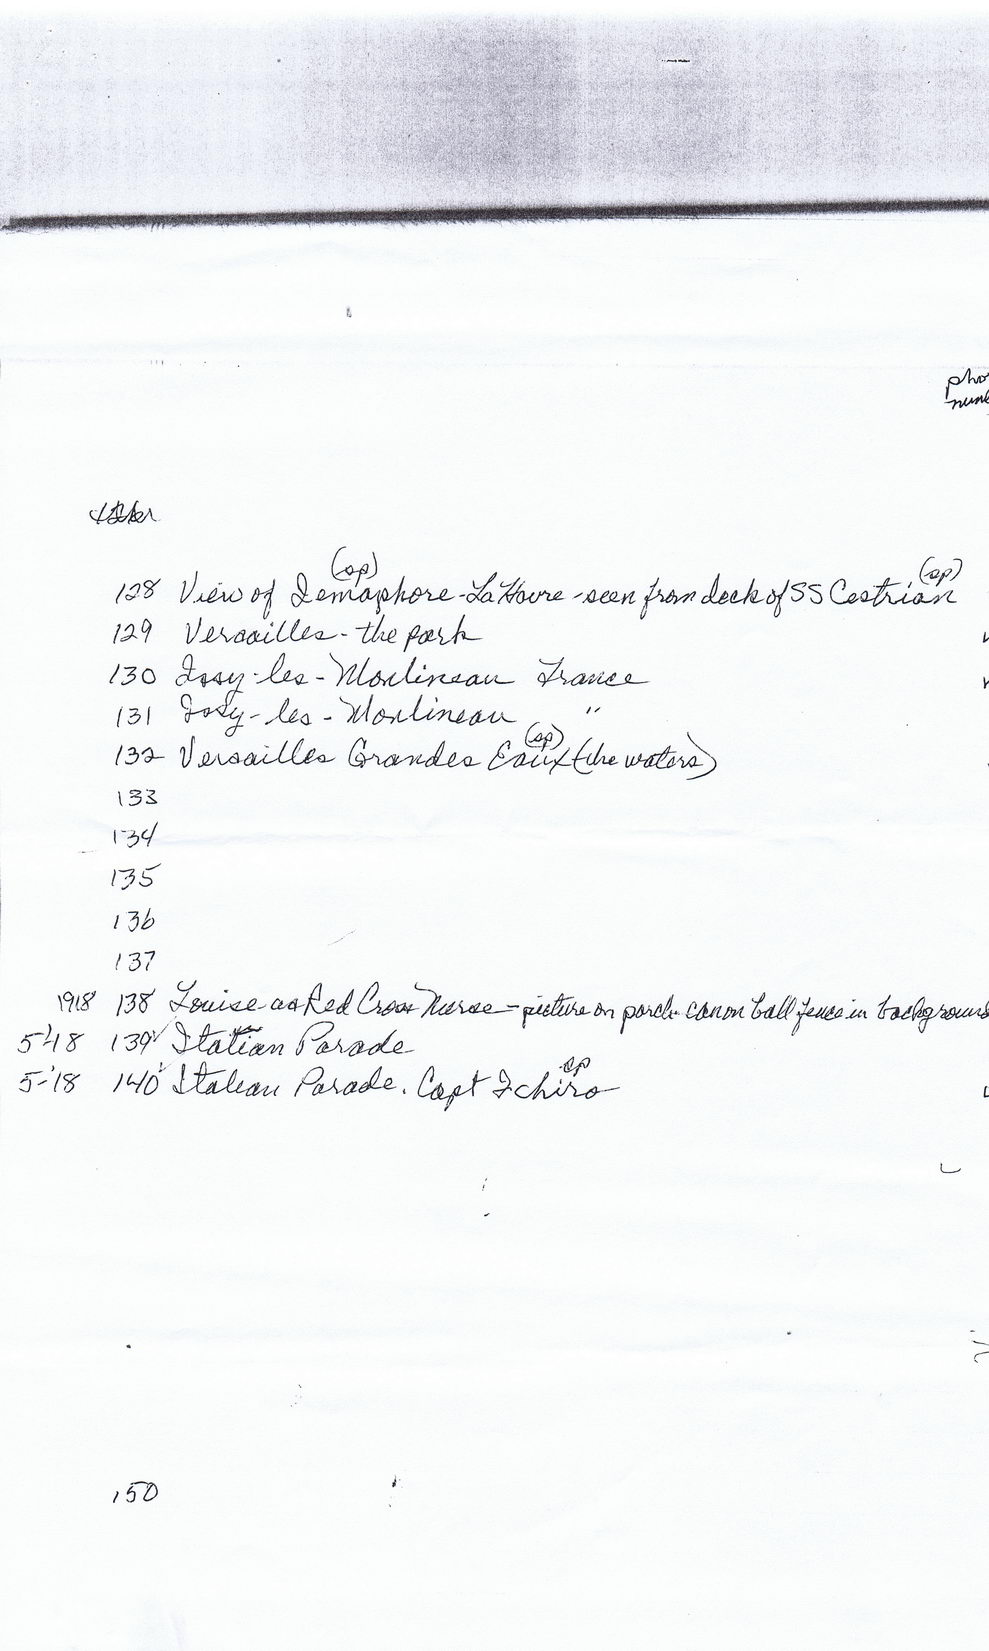 pho
num
(sp) (sp)
128 View of Semaphore - La Havre - seen from deck of SS Cestrian
129 Versailles - the park
130 Issy-les-Moulineau France
131 Issy-les-Moulineau "
(sp)
132 Versailles Grandes Eaux (the waters)
133
134
135
136
137
1918 138 Louise as Red Cross Nurse - picture on porch - canon ball fence in background
5-'18 139 Italian Parade
sp
5-'18 140 Italian Parade. Capt Ichiro
150